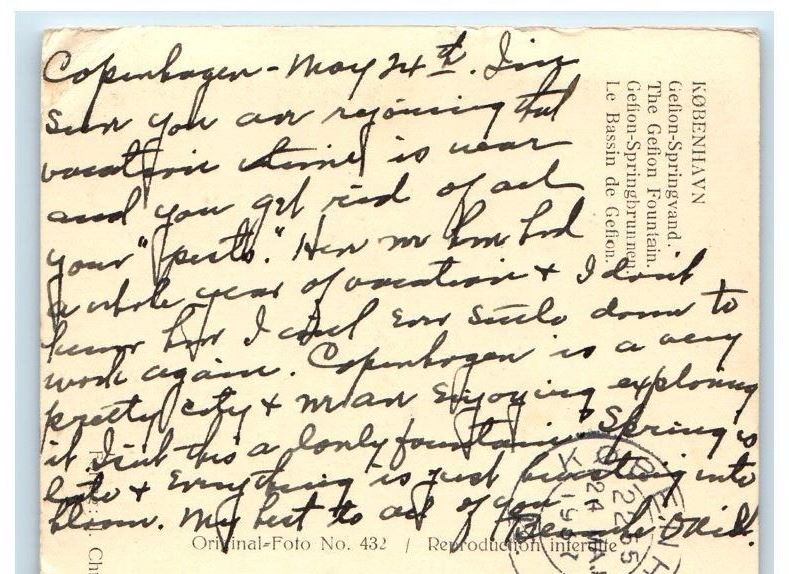 Copenhagen - May 24th. I'm
sure you are rejoicing that
vacation time is near
and you get rid of all
your "pests." Here we have had
a whole year of vacation & I don't
know how I will ever settle down to
work again. Copenhagen is a very
pretty city & we are enjoying exploring
it. Isn't this a lovely fountain? Spring is
late & everything is just bursting into
bloom. My best to all of you
KØBENHAVN
Gefion-Springvand.
The Gefion Fountain.
Gefion-Springbrunnen.
Le Bassin de Gefion.
Original-Foto No. 432 / Reproduction interdite